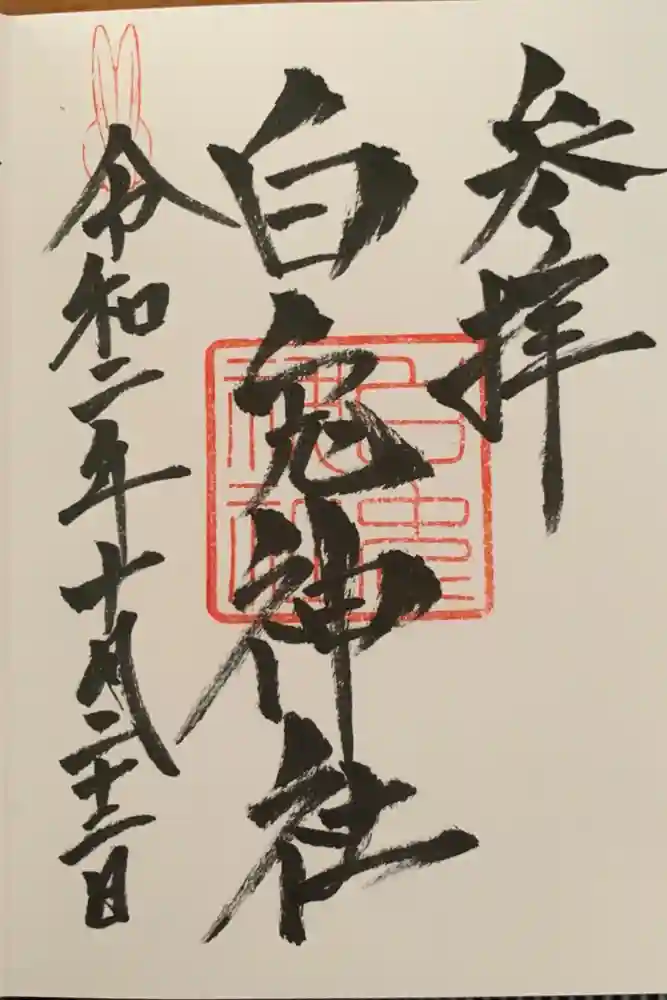 参拝
白兎神社
令和二年十月二十二日
白兎
神社